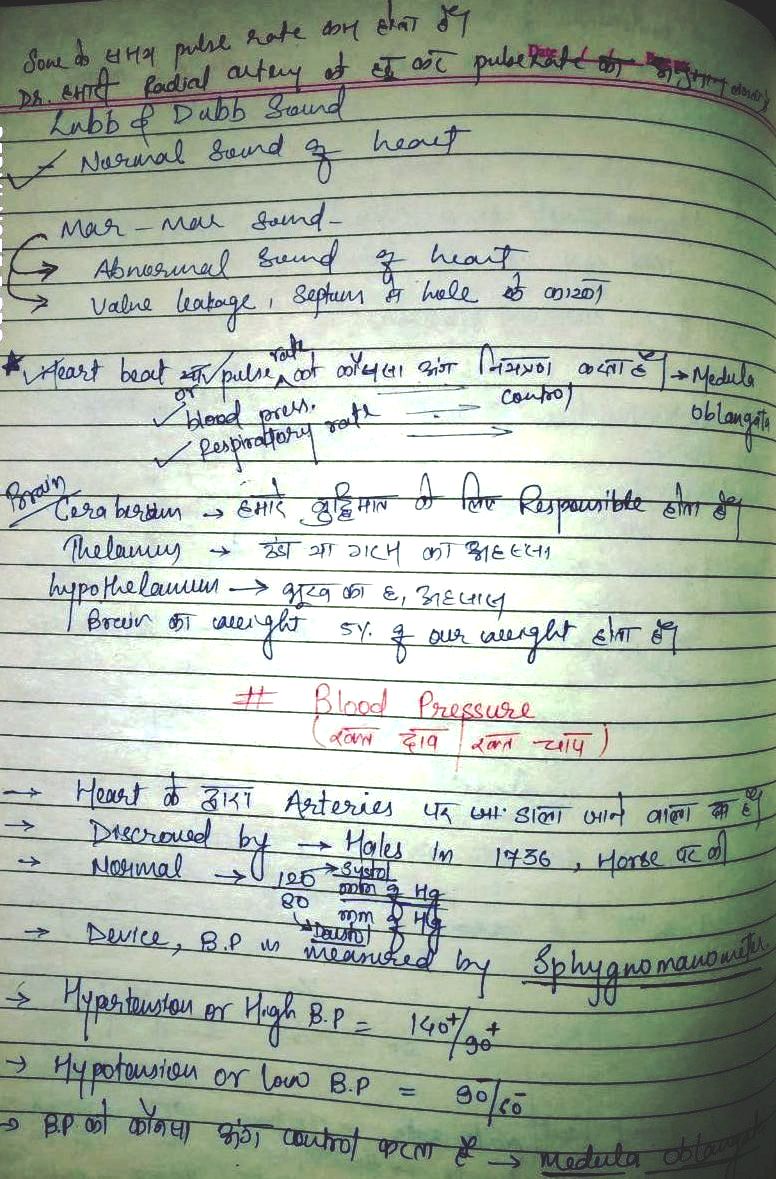 Sone के समय pulse rate कम होता है।
Dr. हमारी Radial artery को छू कर pulse Rate का
Lubb & Dubb Sound
Normal Sound of heart
Mar-Mar Sound-
Abnormal Sound of heart
Valve leakage, Septum में hole के कारण
Heart beat या pulse rate को कौनसा अंग नियंत्रण करता है। → Medula oblangata
or control
blood press.
Respiratory rate
Brain
Cerabrum → हमारे बुद्धिमान के लिए Responsible होता है।
Thelamus → ठंडा या गरम का अहसास
hypothelamus → भूख का अहसास
Brain का weight 5% of our weight होता है।
# Blood Pressure
(रक्त दाब / रक्त चाप)
→ Heart के द्वारा Arteries पर डाला जाने वाला है।
→ Discroved by → Hales in 1736, Horse पर की
→ Normal → 120 → Systol mm of Hg
80 mm of Hg
→ Daistol
→ Device, B.P is measured by Sphygnomanometer
→ Hypertension or High B.P = 140+/90+
→ Hypotension or low B.P = 90-/60-
→ B.P को कौनसा अंग control करता है → Medula oblangata